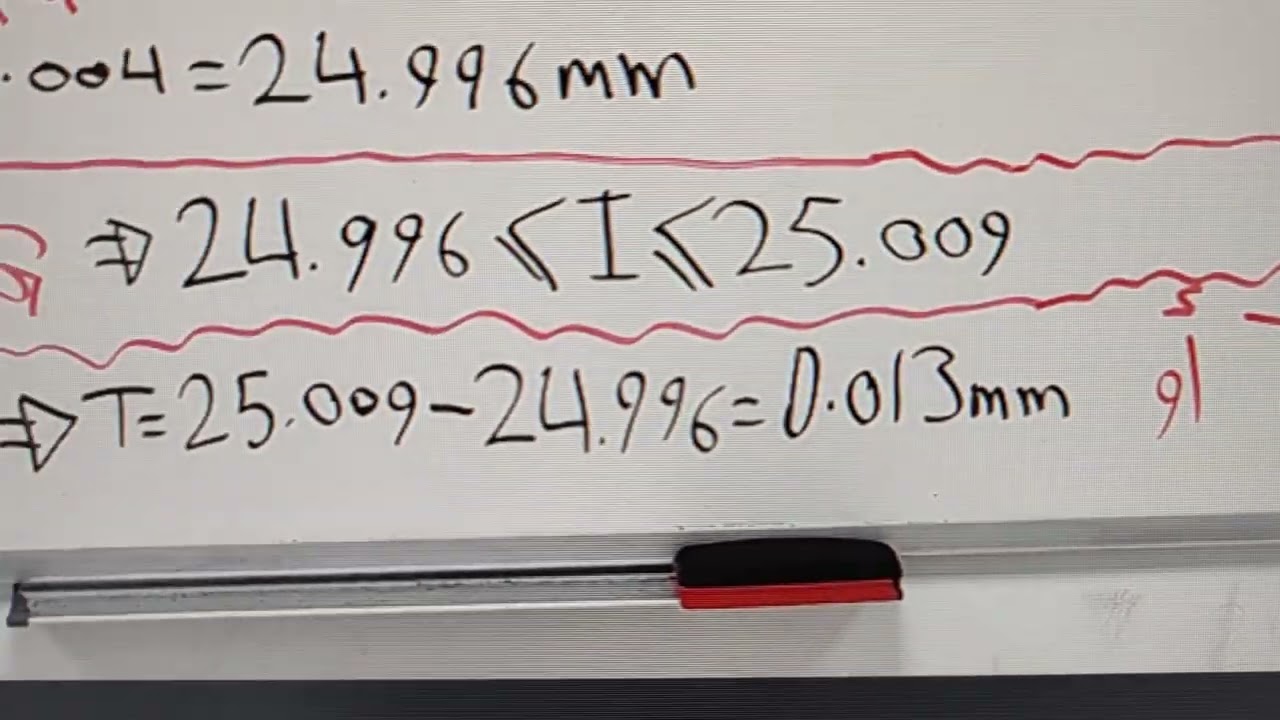 .004 = 24.996 mm
⇒ 24.996 ⩽ I ⩽ 25.009
⇒ T = 25.009 - 24.996 = 0.013 mm